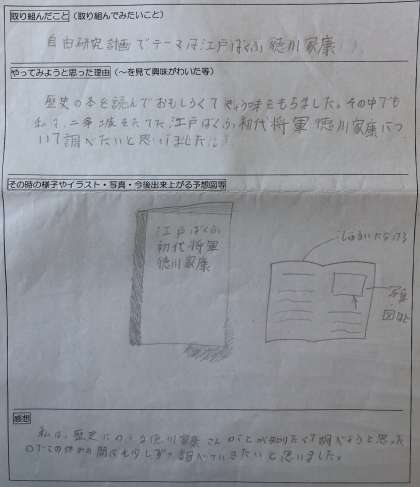 取り組んだこと（取り組んでみたいこと）
自由研究計画でテーマは江戸ばくふ徳川家康
やってみようと思った理由（～を見て興味がわいた等）
歴史の本を読んでおもしろくてきょう味をもちました。その中でも
私は、二条城をたてた、江戸ばくふ初代将軍徳川家康につ
いて調べたいと思いました。
その時の様子やイラスト・写真・今後出来上がる予想図等
江戸ばくふ
初代将軍
徳川家康
写真
図など
感想
私は、歴史にのこる徳川家康さんのことが知りたくて調べようと思った
ので この休みの間にも少しずつ調べていきたいと思いました。